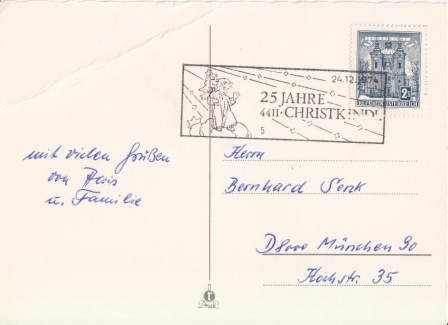 24.12.1974
25 JAHRE
4411 · CHRISTKINDL
5
2S
REPUBLIK ÖSTERREICH
mit vielen Grüßen
von Alois
u. Familie
Herrn
Bernhard Senk
D8000 München 90
Hochstr. 35
Druck